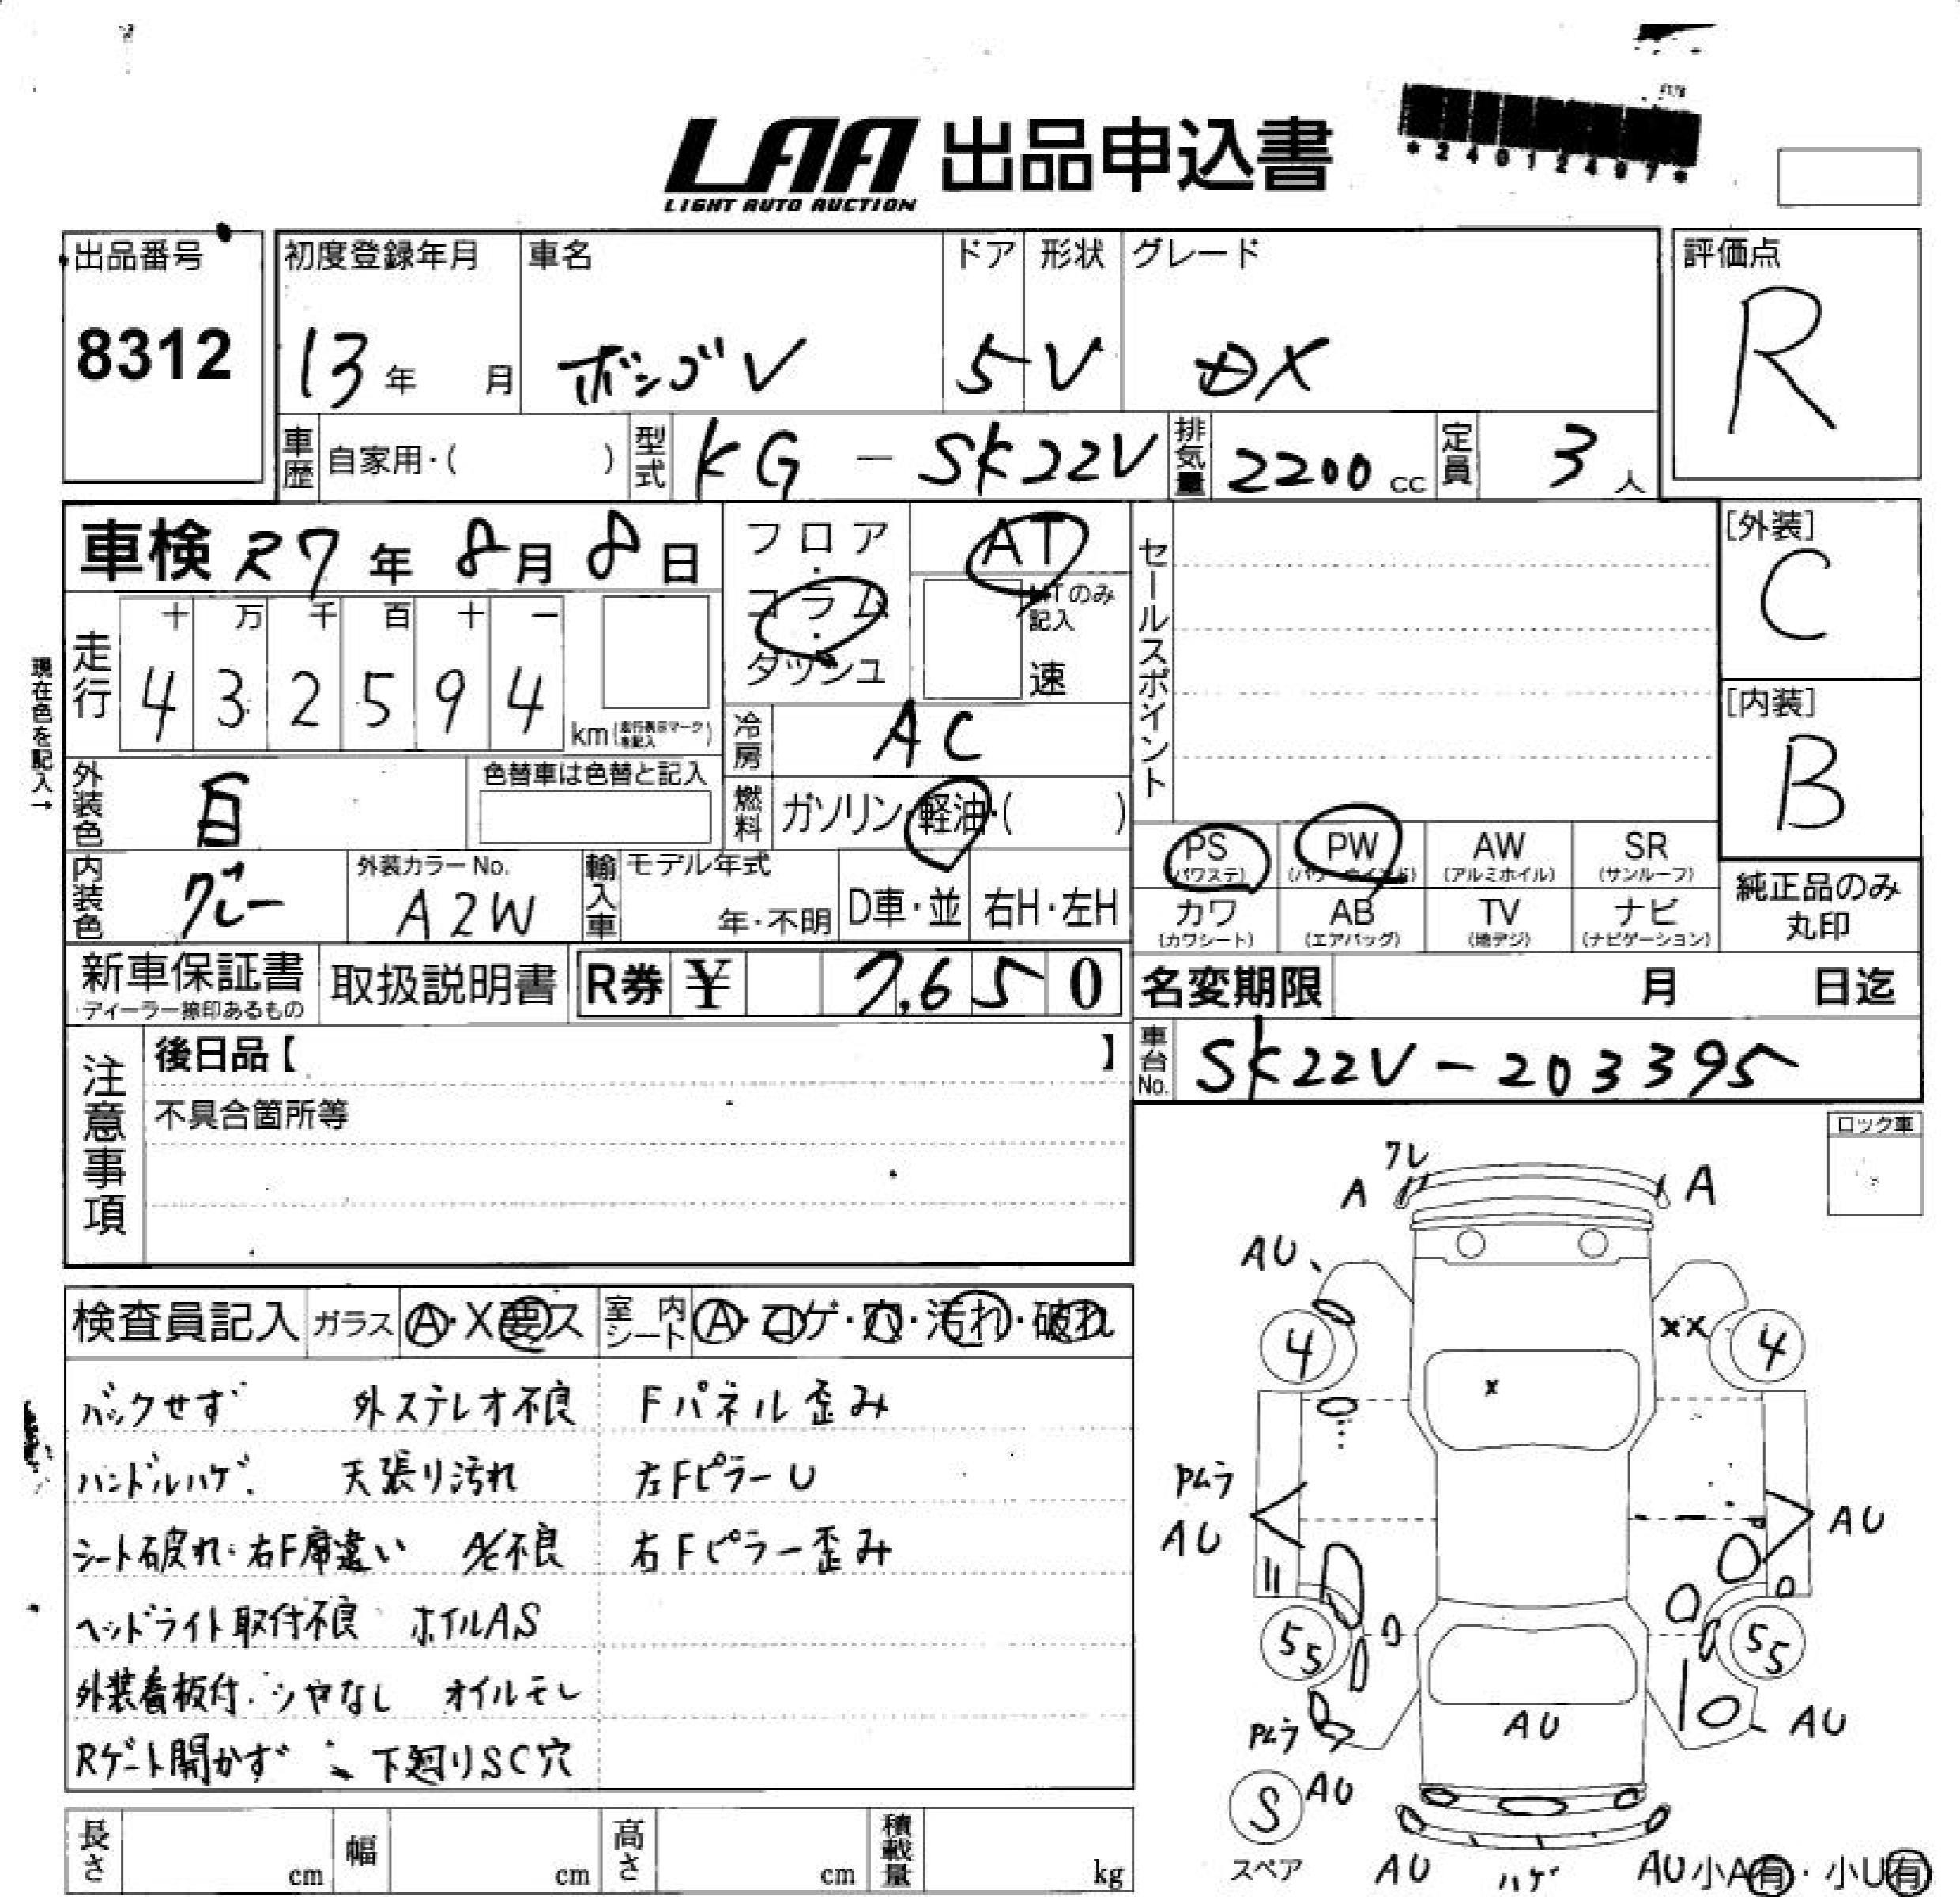 LAA 出品申込書
LIGHT AUTO AUCTION
*24012497*
出品番号
8312
初度登録年月
13年 月
車名
ボンゴV
ドア
5
形状
V
グレード
DX
評価点
R
車歴 自家用・( )
型式 KG - SK22V
排気量 2200cc
定員 3人
車検 R7年 8月 8日
フロア・コラム・ダッシュ
AT
MTのみ記入
速
セールスポイント
[外装]
C
[内装]
B
現在色を記入→
走行
十 万 千 百 十 一
4 3 2 5 9 4
km(走行表示マークを記入)
冷房 AC
外装色 白
色替車は色替と記入
燃料 ガソリン・軽油・( )
内装色 グレー
外装カラーNo.
A2W
輸入車
モデル年式
年・不明
D車・並
右H・左H
PS (パワステ)
PW (パワーウインド)
AW (アルミホイル)
SR (サンルーフ)
カワ (カワシート)
AB (エアバッグ)
TV (地デジ)
ナビ (ナビゲーション)
純正品のみ丸印
新車保証書
ディーラー捺印あるもの
取扱説明書
R券 ¥ 7,650
名変期限 月 日迄
車台No. SK22V-203395
注意事項
後日品【 】
不具合箇所等
ロック車
検査員記入
ガラス A・X要ス
室内シート A・コゲ・穴・汚れ・破れ
バックせず 外ステレオ不良 Fパネル歪み
ハンドルハゲ 天張り汚れ 左FピラーU
シート破れ・右F席違い A/C不良 右Fピラー歪み
ヘッドライト取付不良 ホイルAS
外装看板付・シヤなし オイルモレ
Rゲート開かず 下廻りSC穴
長さ cm
幅 cm
高さ cm
積載量 kg
ワレ
A
A
AU
4
XX
4
X
Pムラ
AU
AU
55
55
Pムラ
AU
AU
S
AU
スペア
AU
ハゲ
AU
小A有・小U有